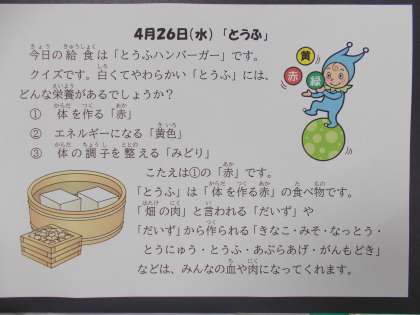 4月26日(水)「とうふ」
今日の給食は「とうふハンバーガー」です。
クイズです。白くてやわらかい「とうふ」には、
どんな栄養があるでしょうか？
① 体を作る「赤」
② エネルギーになる「黄色」
③ 体の調子を整える「みどり」
こたえは①の「赤」です。
「とうふ」は「体を作る赤」の食べ物です。
「畑の肉」と言われる「だいず」や
「だいず」から作られる「きなこ・みそ・なっとう・
とうにゅう・とうふ・あぶらあげ・がんもどき」
などは、みんなの血や肉になってくれます。
黄
赤
緑